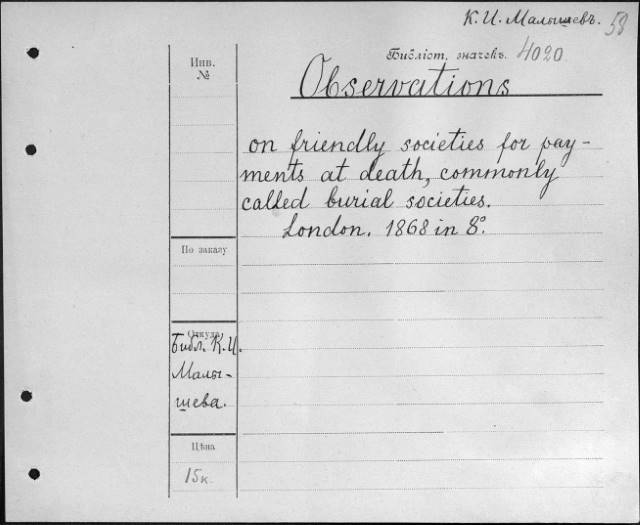 К. И. Малышевъ. 58
Библіот. значекъ. 4020.
Инв.
№
Observations
on friendly societies for pay-
ments at death, commonly
called burial societies.
London. 1868 in 8°.
По заказу
Откуда
Библ. К. И.
Малы-
шева.
Цѣна
15к.